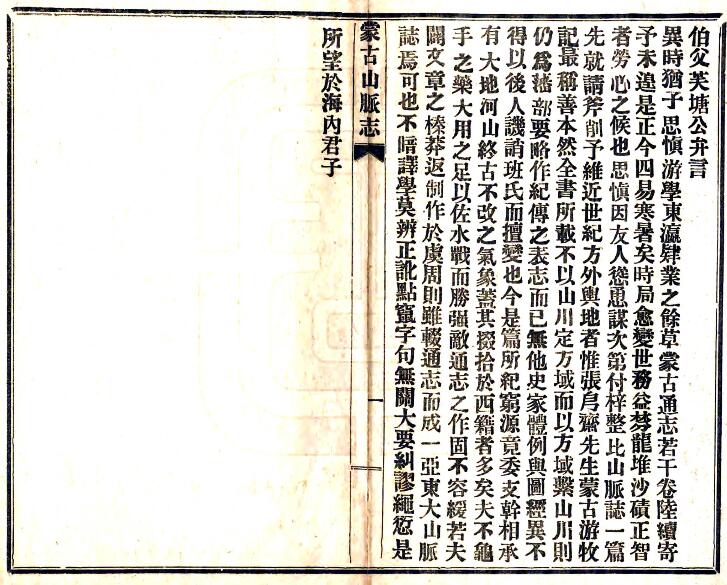 伯父芙塘公弁言
異時猶子思慎游學東瀛肄業之餘草蒙古通志若干卷陸續寄
予未遑是正今四易寒暑矣時局愈變世務益棼龍堆沙磧正智
者勞心之候也思慎因友人慫恿謀次第付梓整比山脈誌一篇
先就請斧削予維近世紀方外輿地者惟張㕓齋先生蒙古游牧
記最稱善本然全書所載不以山川定方域而以方域繫山川則
仍爲藩部要略作紀傳之表志而已無他史家體例與圖經異不
得以後人譏誚班氏而擅變也今是篇所紀窮源竟委支幹相承
有大地河山終古不改之氣象蓋其掇拾於西籍者多矣夫不龜
手之藥大用之足以佐水戰而勝强敵通志之作固不容緩若夫
闢文章之榛莽返制作於虞周則雖輟通志而成一亞東大山脈
誌焉可也不暗譯學莫辨正訛點竄字句無關大要糾謬繩愆是
蒙古山脈志
一
所望於海內君子